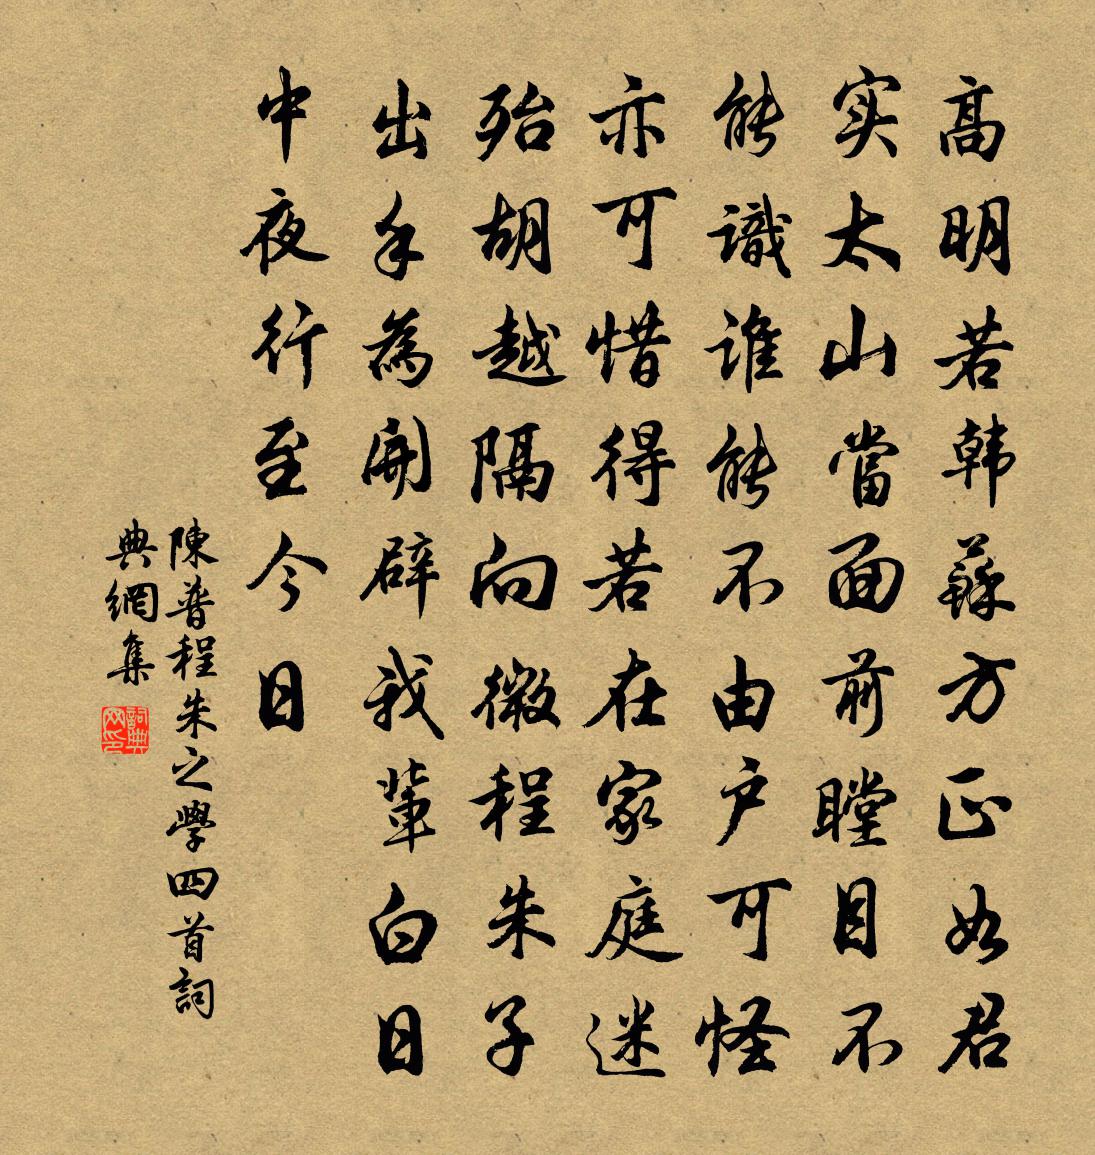 高明若韩蘇方正如君
实太山當面前瞠目不
能識谁能不由户可怪
亦可惜得若在家庭迷
殆胡越隔向微程朱子
出手為開辟我輩白日
中夜行至今日
陳普程朱之學四首詞
典網集
詞典
网印